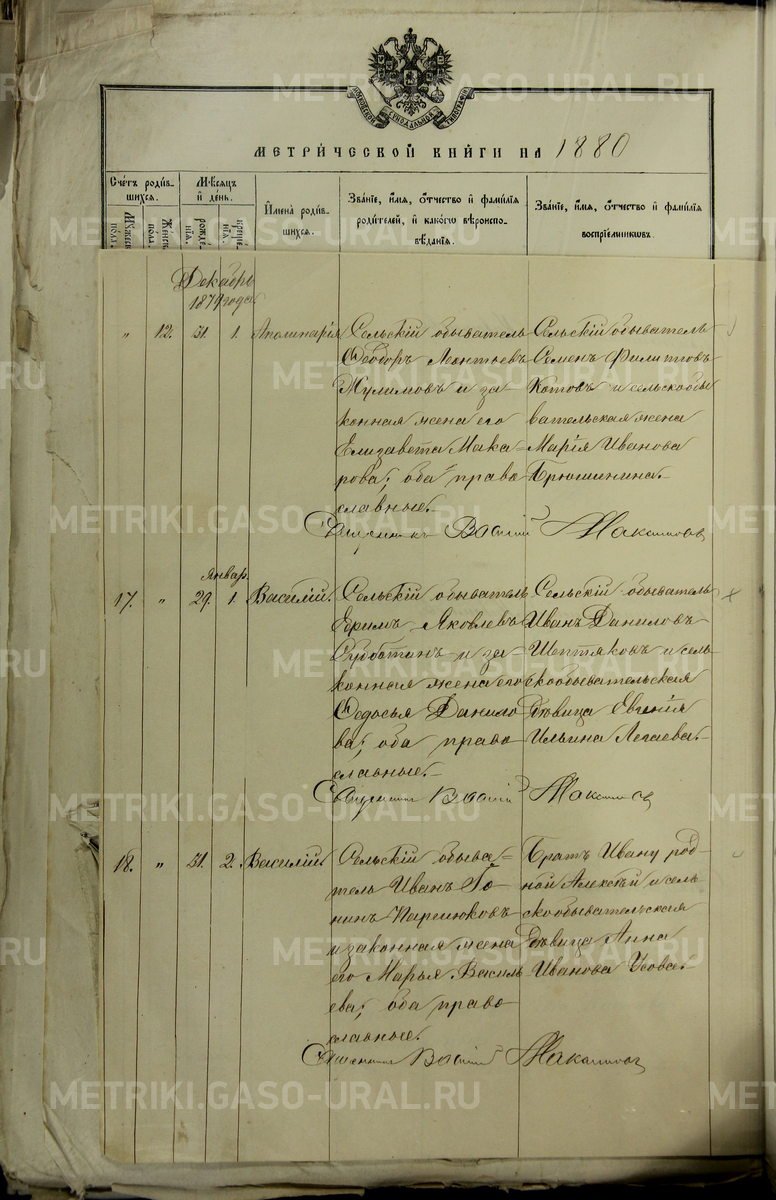 МОСКОВСКОЙ СѴНОДАЛЬНОЙ ТИПОГРАФІИ
МЕТРИ́ЧЕСКОЙ КНИ́ГИ НА 1880
Сче́тъ роди́в-
шихся.
Мꙋжеск.
по́ла.
Же́нск.
по́ла.
Мѣ́сяцъ
и҆ де́нь.
рожде́-
нїя.
креще́-
нїя.
И҆мена̀ роди́в-
шихся.
Зва́нїе, и҆́мя, ѻ҆́тчество и҆ фами́лїя
роди́телей, и҆ како́гѡ вѣроиспо-
вѣ́данїя.
Зва́нїе, и҆́мя, ѻ҆́тчество и҆ фами́лїя
воспрїе́мникѡвъ.
Декабрь
1879 года
" 12. 31. 1. Аполинарія
Сельскій обыватель
Ѳеодоръ Леонтьевъ
Жулимовъ и за
конная жена его
Елизавета Мака-
рова; оба право
славные.
Сельскій обыватель
Семенъ Филипповъ
Котовъ и сельскообы
вательская жена
Марія Иванова
Брюшинина.
Священникъ Василій Максимовъ
Январ.
17. " 29. 1. Василій.
Сельскій обыватель
Ефимъ Яковлевъ
Субботинъ и за
конная жена его
Ѳедосья Данило
ва; оба право
славные.
Сельскій обыватель
Иванъ Даниловъ
и сель
скообывательская
дѣвица Евгенія
Ильина Легаева.
Священникъ Василій Максимовъ
18. " 31. 2. Василій.
Сельскій обыва-
тель Иванъ
и законная жена
его Марья Василь
ева; оба право
славные.
Братъ Ивану род
ной Алексѣй и сель
скообывательская
дѣвица Анна
Иванова Усова.
Священникъ Василій Максимовъ
METRIKI.GASO-URAL.RU